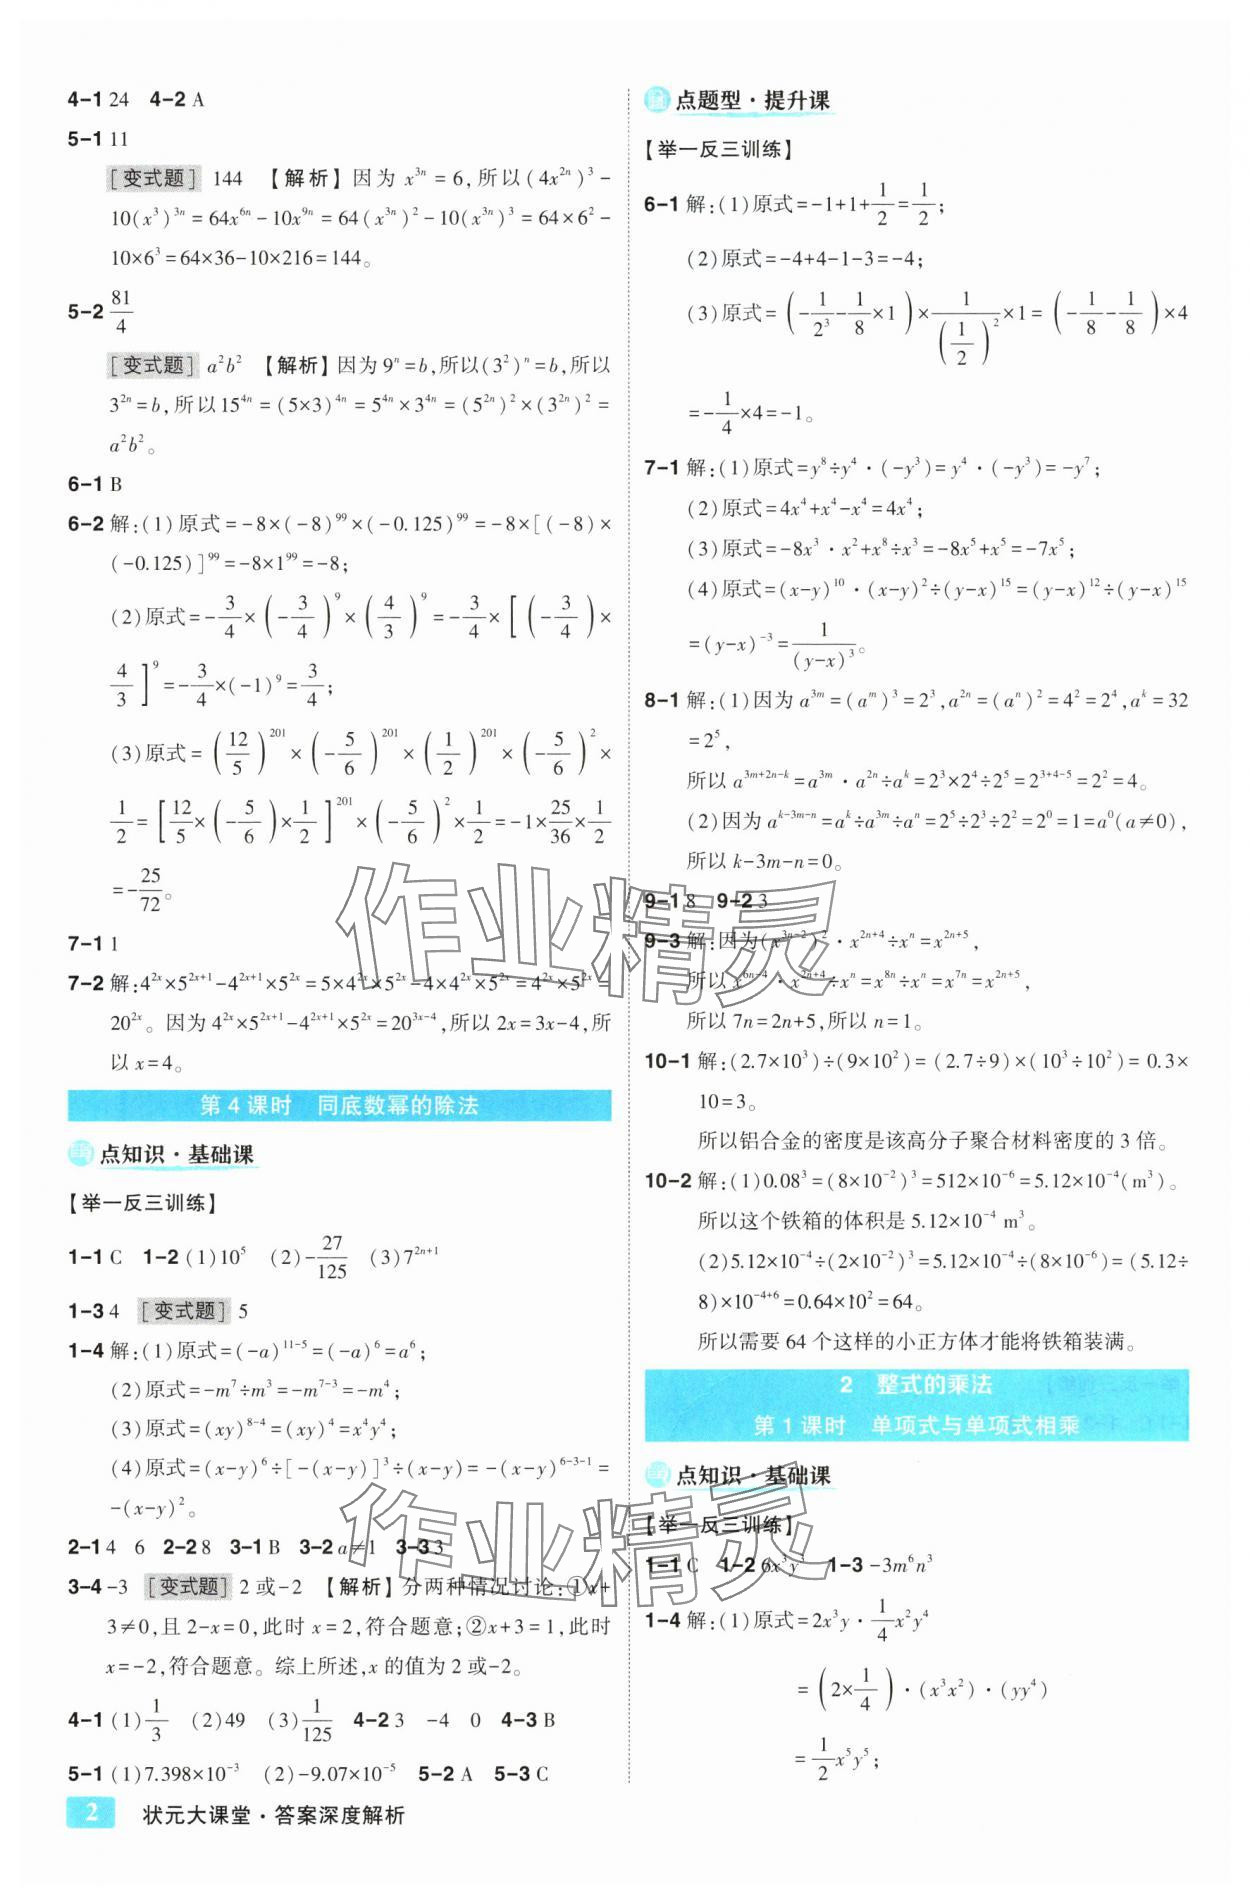 4-1 24 4-2 A
5-1 11
[变式题] 144 【解析】因为 x³ⁿ=6,所以(4x²ⁿ)³-
10(x³)³ⁿ=64x⁶ⁿ-10x⁹ⁿ=64(x³ⁿ)²-10(x³ⁿ)³=64×6²-
10×6³=64×36-10×216=144。
5-2 81/4
[变式题] a²b² 【解析】因为9ⁿ=b,所以(3²)ⁿ=b,所以
3²ⁿ=b,所以15⁴ⁿ=(5×3)⁴ⁿ=5⁴ⁿ×3⁴ⁿ=(5²ⁿ)²×(3²ⁿ)²=
a²b²。
6-1 B
6-2 解:(1)原式=-8×(-8)⁹⁹×(-0.125)⁹⁹=-8×[(-8)×
(-0.125)]⁹⁹=-8×1⁹⁹=-8;
(2)原式=-3/4×(-3/4)⁹×(4/3)⁹=-3/4×[(-3/4)×
4/3]⁹=-3/4×(-1)⁹=3/4;
(3)原式=(12/5)²⁰¹×(-5/6)²⁰¹×(1/2)²⁰¹×(-5/6)²×
1/2=[12/5×(-5/6)×1/2]²⁰¹×(-5/6)²×1/2=-1×25/36×1/2
=-25/72。
7-1 1
7-2 解:4^{2x}×5^{2x+1}-4^{2x+1}×5^{2x}=5×4^{2x}×5^{2x}-4×4^{2x}×5^{2x}=4^{2x}×5^{2x}=
20^{2x}。因为4^{2x}×5^{2x+1}-4^{2x+1}×5^{2x}=20^{3x-4},所以2x=3x-4,所
以x=4。
第4课时 同底数幂的除法
点知识·基础课
【举一反三训练】
1-1 C 1-2 (1)10⁵ (2)-27/125 (3)7^{2n+1}
1-3 4 [变式题] 5
1-4 解:(1)原式=(-a)^{11-5}=(-a)⁶=a⁶;
(2)原式=-m⁷÷m³=-m^{7-3}=-m⁴;
(3)原式=(xy)^{8-4}=(xy)⁴=x⁴y⁴;
(4)原式=(x-y)⁶÷[-(x-y)]³÷(x-y)=-(x-y)^{6-3-1}=
-(x-y)²。
2-1 4 6 2-2 8 3-1 B 3-2 a≠1 3-3 3
3-4 -3 [变式题] 2或-2 【解析】分两种情况讨论:①x+
3≠0,且2-x=0,此时x=2,符合题意;②x+3=1,此时
x=-2,符合题意。综上所述,x的值为2或-2。
4-1 (1)1/3 (2)49 (3)1/125 4-2 3 -4 0 4-3 B
5-1 (1)7.398×10⁻³ (2)-9.07×10⁻⁵ 5-2 A 5-3 C
2 状元大课堂·答案深度解析
点题型·提升课
【举一反三训练】
6-1 解:(1)原式=-1+1+1/2=1/2;
(2)原式=-4+4-1-3=-4;
(3)原式=(-1/2³-1/8×1)×1/(1/2)²×1=(-1/8-1/8)×4
=-1/4×4=-1。
7-1 解:(1)原式=y⁸÷y⁴·(-y³)=y⁴·(-y³)=-y⁷;
(2)原式=4x⁴+x⁴-x⁴=4x⁴;
(3)原式=-8x³·x²+x⁸÷x³=-8x⁵+x⁵=-7x⁵;
(4)原式=(x-y)¹⁰·(x-y)²÷(y-x)¹⁵=(y-x)¹²÷(y-x)¹⁵
=(y-x)⁻³=1/(y-x)³。
8-1 解:(1)因为a^{3m}=(a^m)³=2³,a²ⁿ=(aⁿ)²=4²=2⁴,a^k=32
=2⁵,
所以a^{3m+2n-k}=a^{3m}·a²ⁿ÷a^k=2³×2⁴÷2⁵=2^{3+4-5}=2²=4。
(2)因为a^{k-3m-n}=a^k÷a^{3m}÷aⁿ=2⁵÷2³÷2²=2⁰=1=a⁰(a≠0),
所以k-3m-n=0。
9-1 8 9-2 3
9-3 解:因为(x^{3n-2})²·x^{2n+4}÷xⁿ=x^{2n+5},
所以x^{6n-4}·x^{2n+4}÷xⁿ=x⁸ⁿ÷xⁿ=x⁷ⁿ=x^{2n+5},
所以7n=2n+5,所以n=1。
10-1 解:(2.7×10³)÷(9×10²)=(2.7÷9)×(10³÷10²)=0.3×
10=3。
所以铝合金的密度是该高分子聚合材料密度的3倍。
10-2 解:(1)0.08³=(8×10⁻²)³=512×10⁻⁶=5.12×10⁻⁴(m³)。
所以这个铁箱的体积是5.12×10⁻⁴ m³。
(2)5.12×10⁻⁴÷(2×10⁻²)³=5.12×10⁻⁴÷(8×10⁻⁶)=(5.12÷
8)×10^{-4+6}=0.64×10²=64。
所以需要64个这样的小正方体才能将铁箱装满。
2 整式的乘法
第1课时 单项式与单项式相乘
点知识·基础课
【举一反三训练】
1-1 C 1-2 6x³y³ 1-3 -3m⁶n³
1-4 解:(1)原式=2x³y·1/4x²y⁴
=(2×1/4)·(x³x²)·(yy⁴)
=1/2x⁵y⁵;
作业精灵
作业精灵